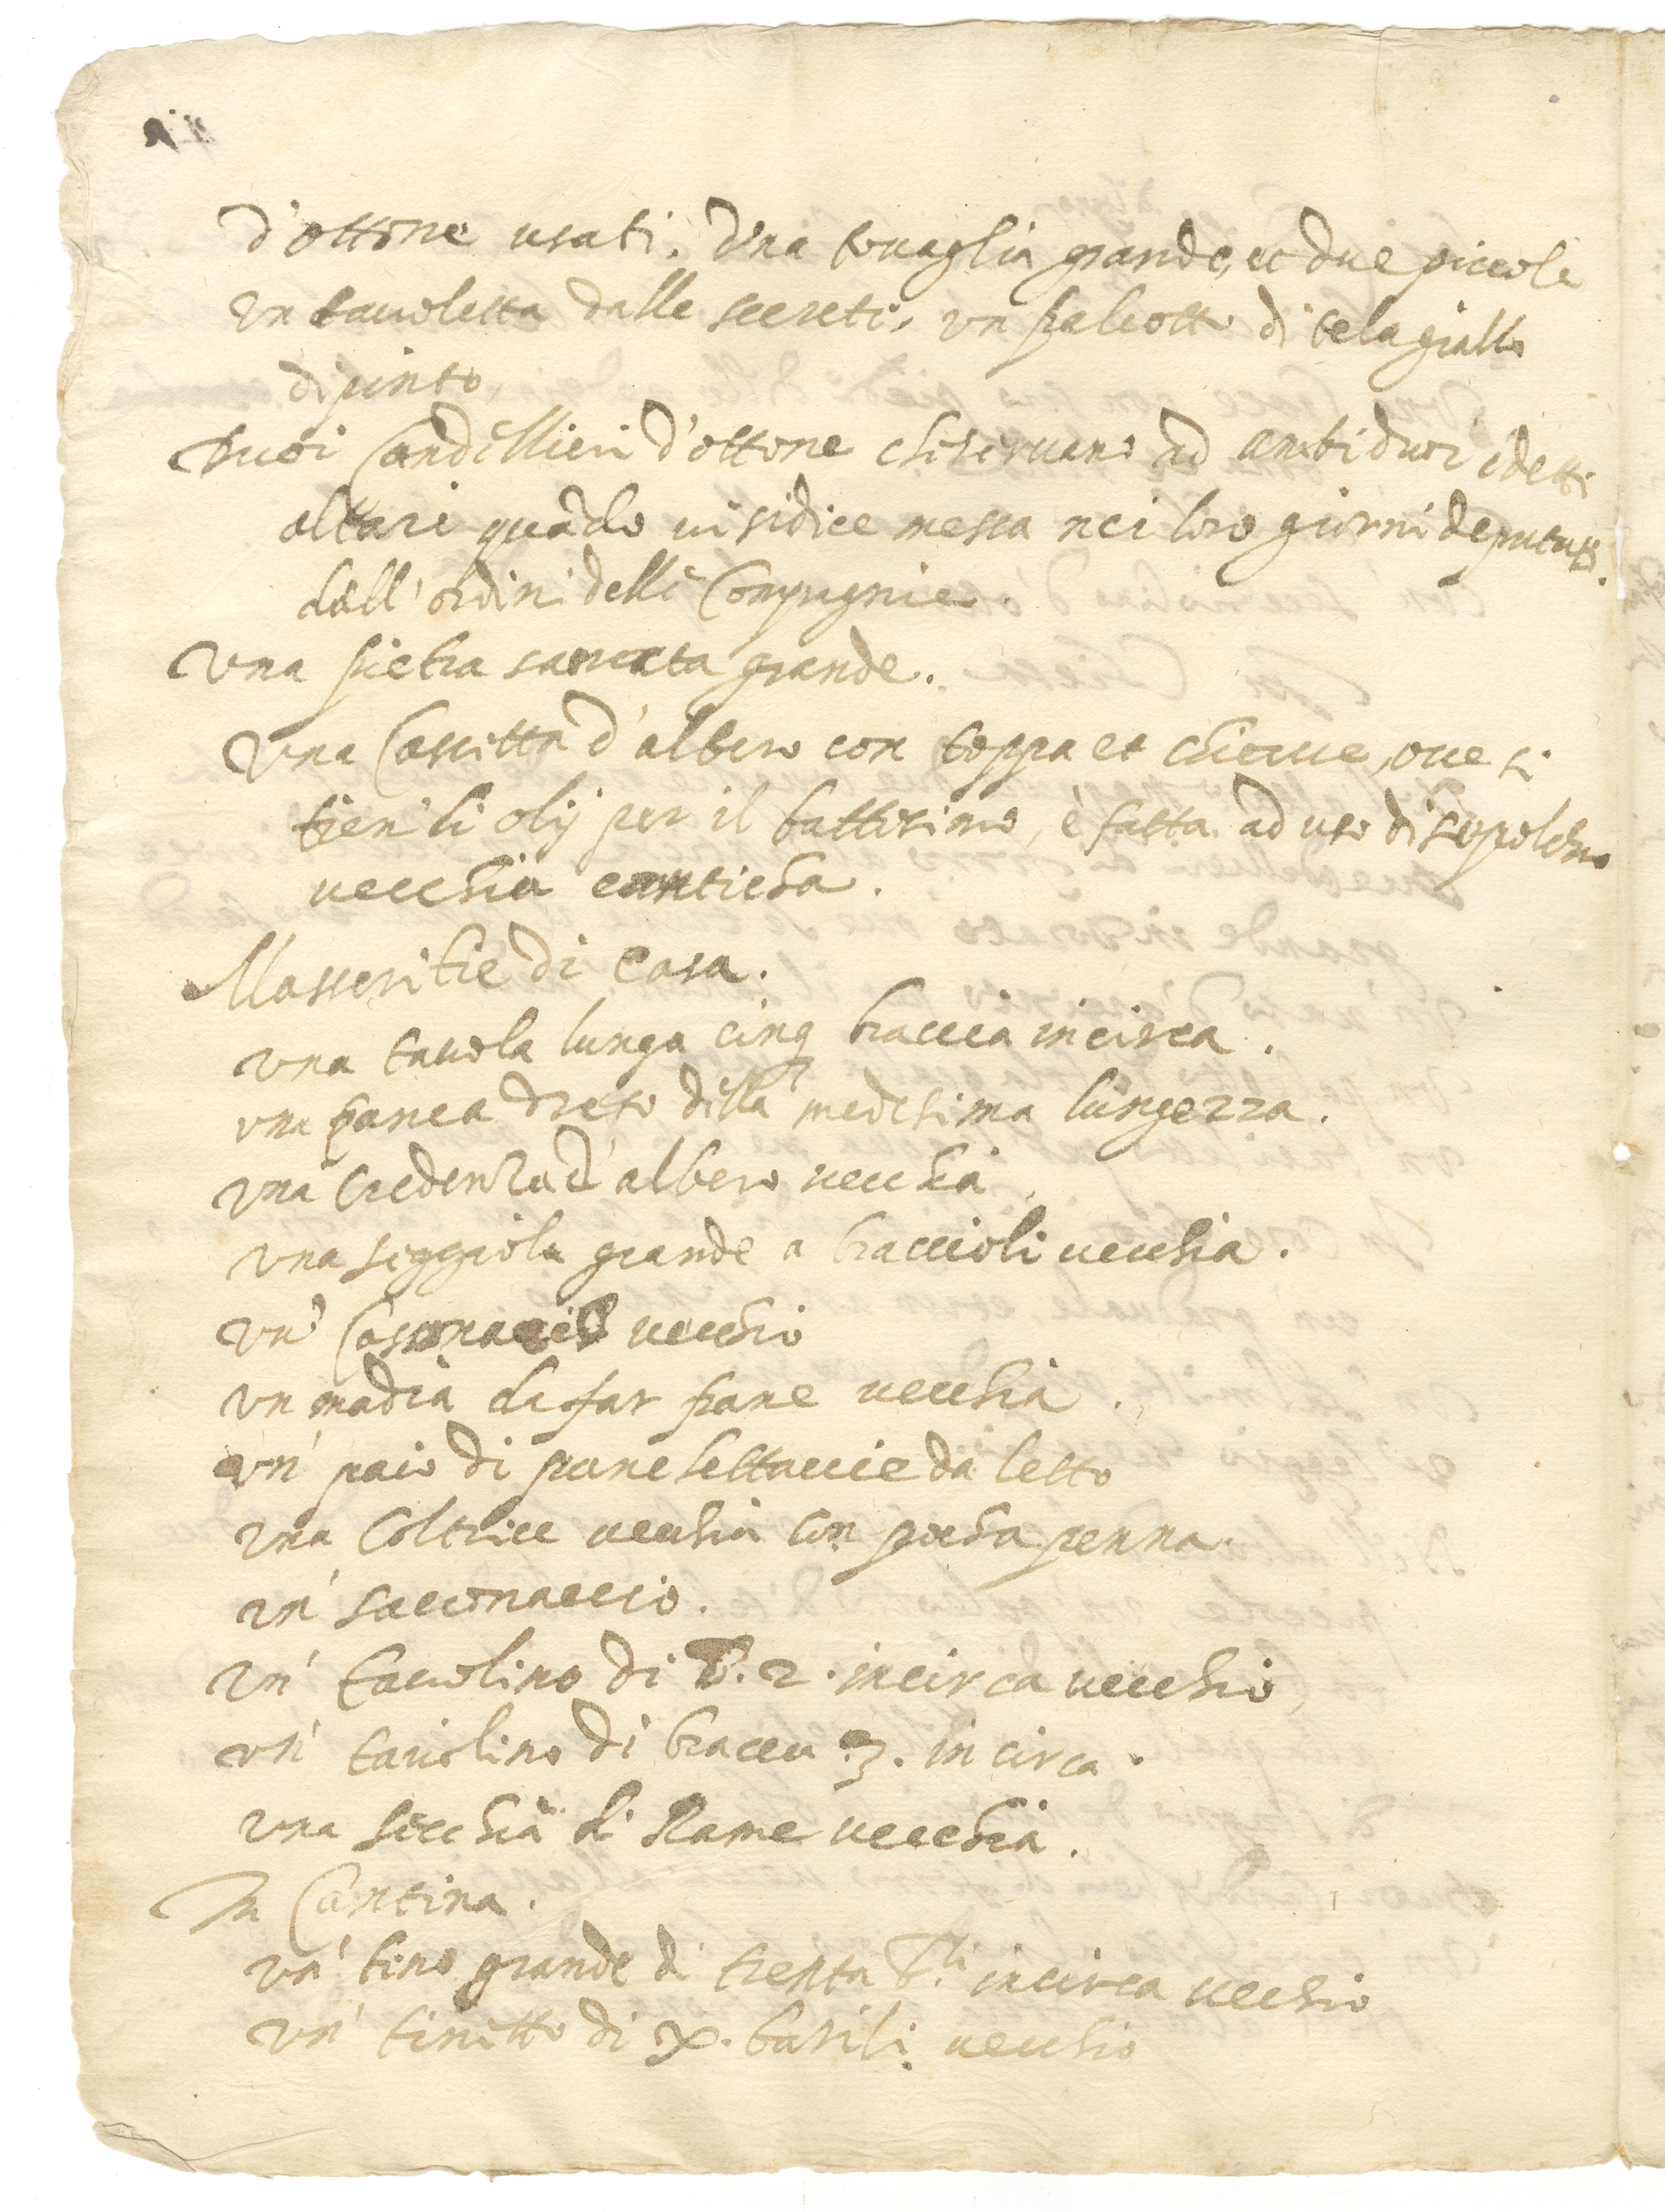 d'ottone usati. Una tovaglia grande, et due piccole
un tauoletta dalle secreti, un paleotto di tela gialla
dipinto,
Duoi Candellieri d'ottone che seruano ad ambiduoi i detti
altari quãdo ui si dice messa nei loro giorni deputati
dall'ordini delle Compagnie.
Una pietra sacrata grande.
Una Cassetta d'albero con toppa et chiaue, oue si
tien li olij per il battesimo, è fatta ad uso di sepolchro
uecchia e anticha.
Masseritie di Casa.
una tauola lunga cinq braccia incirca.
una panca dreto della medesima lungezza.
una Credenza d'albero uecchia
una seggiola grande a braccioli uecchia.
un' uecchio
un madia da far pane uecchia.
un' paio di panchettaccie da letto
una Coltrice uecchia con pocha penna.
un' sacconaccio.
un' tauolino di B. 2. incirca uecchio,
un' tauolino di braccia 3. in circa.
una secchia di Rame uecchia.
In Cantina.
un' tino grande di trenta b.li incirca uecchio
un' tinetto di X. barili uecchio